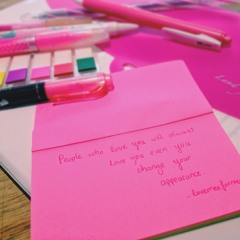 People who love you will always
love you even you
change your
appearance.